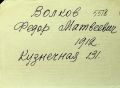 Волков
Федор Матвеевич
1912
Кузнечная 131.